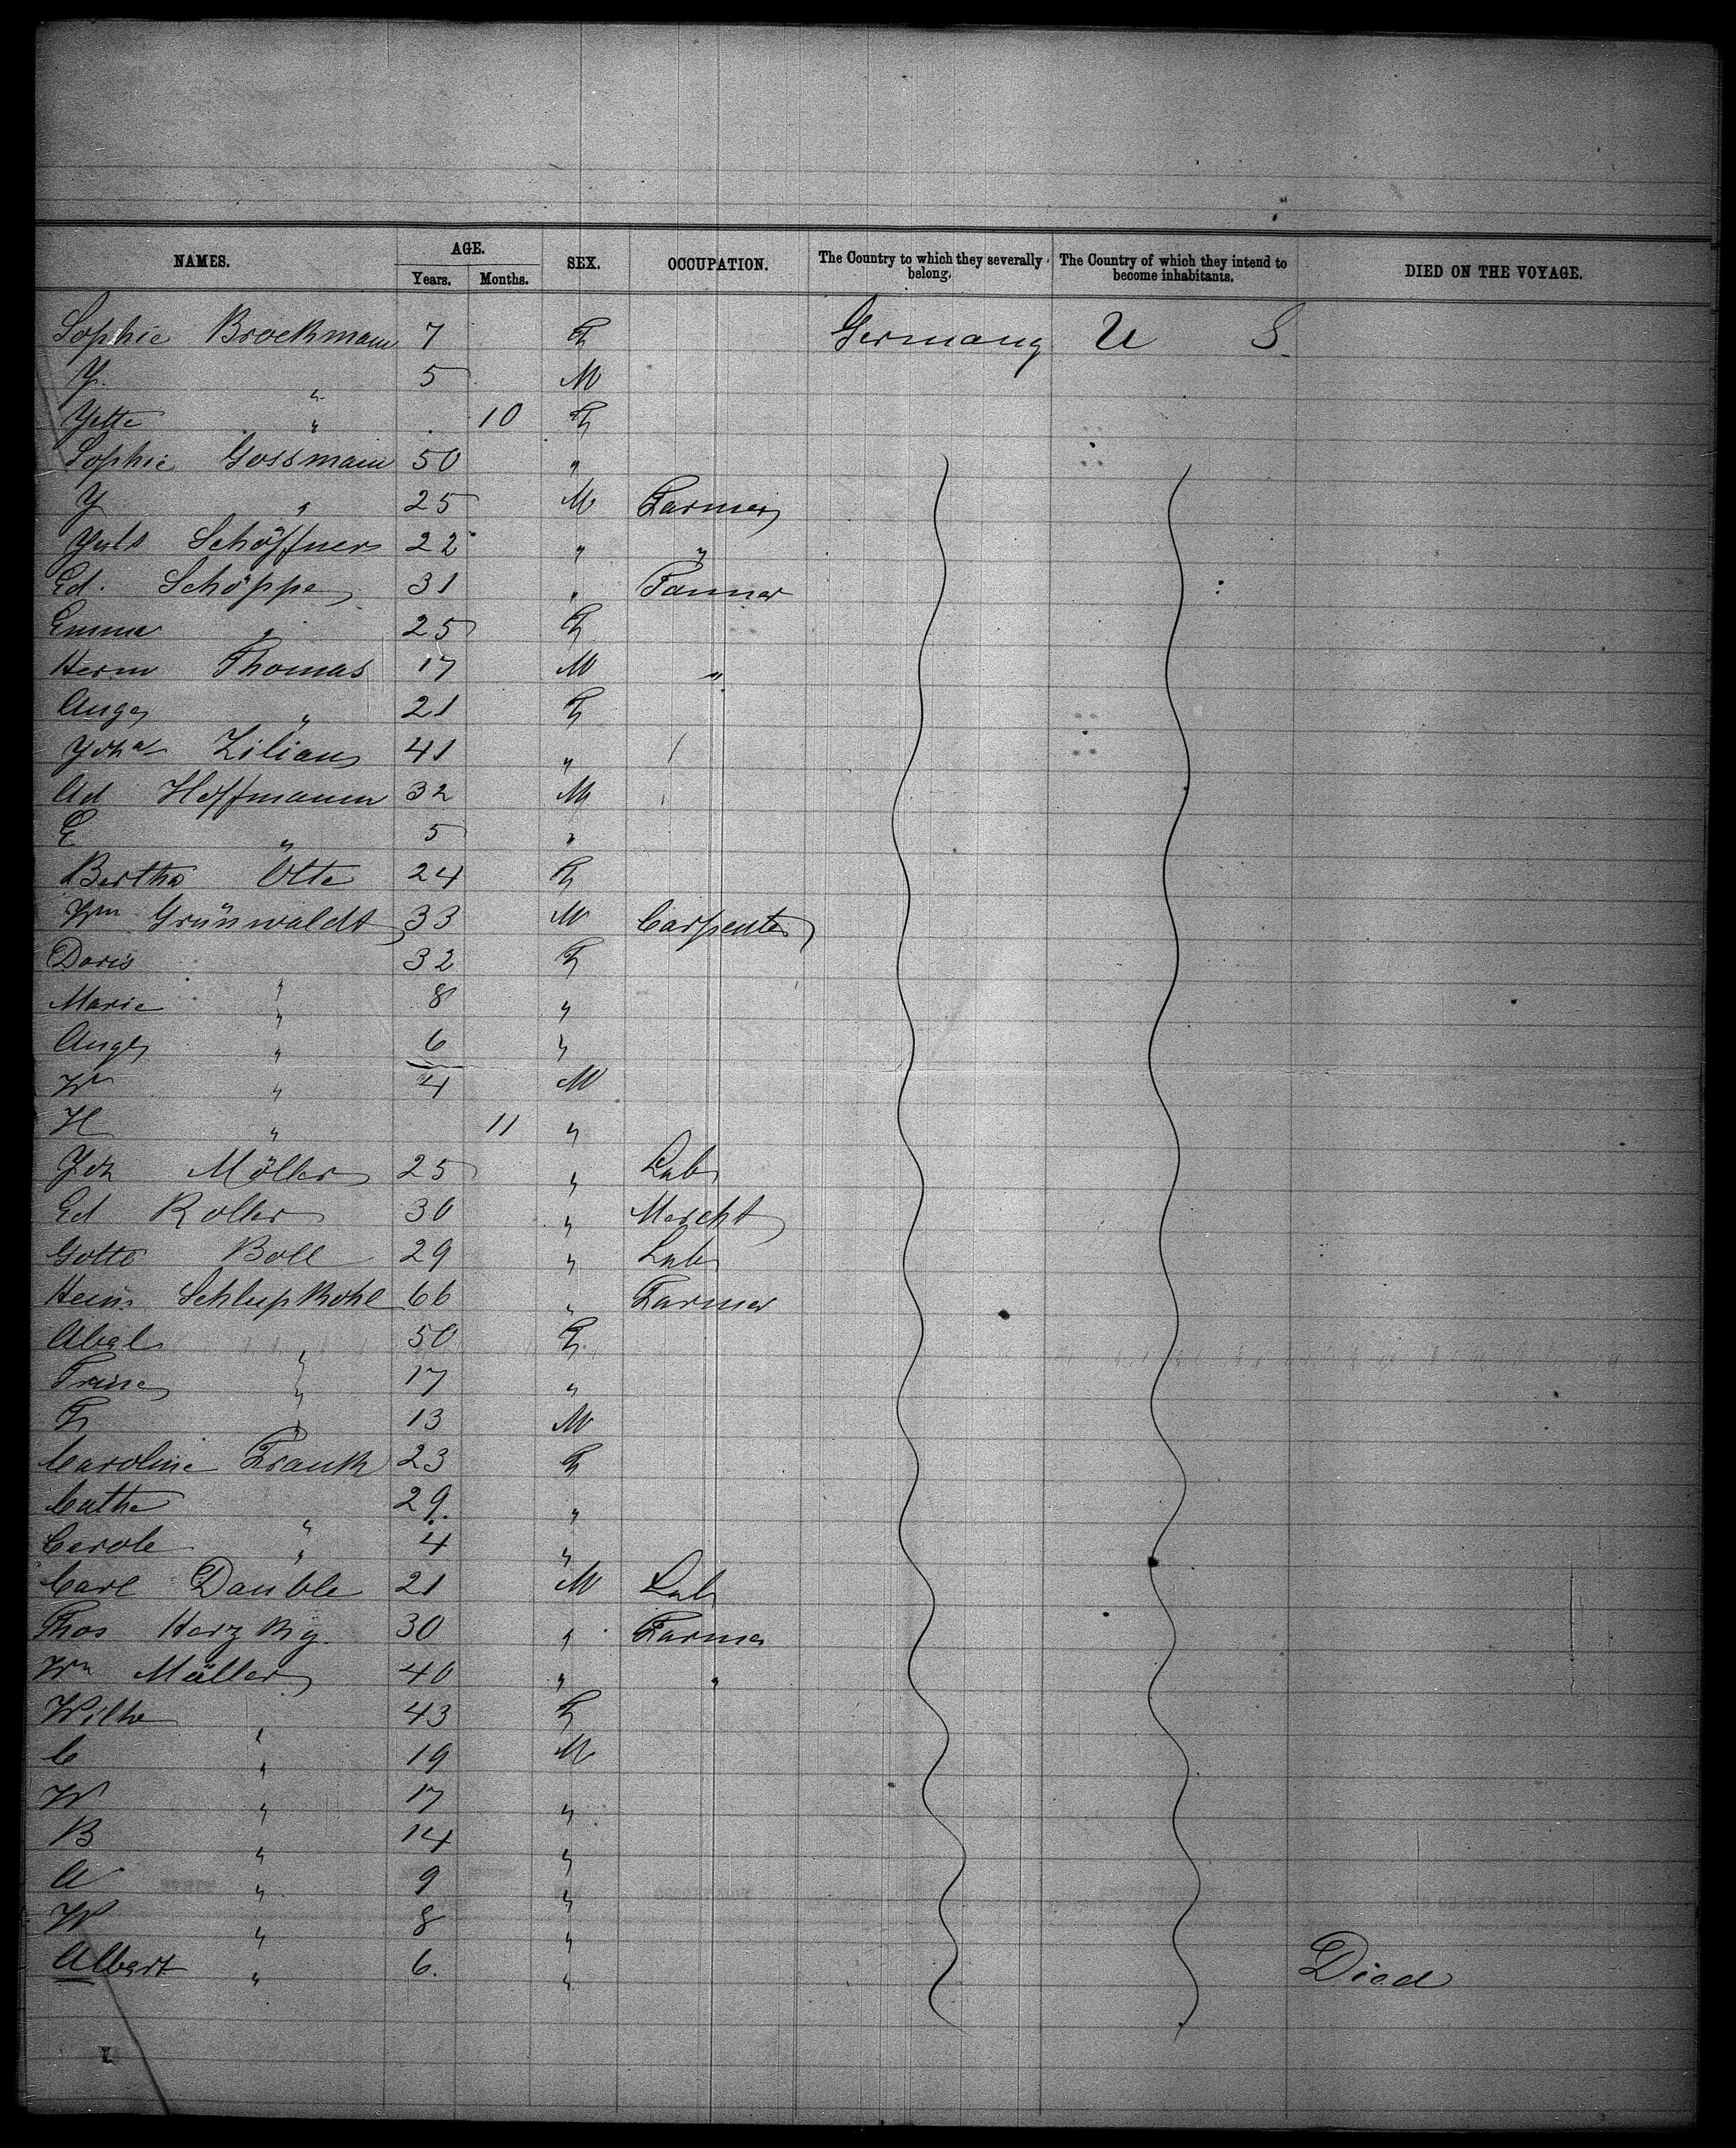 NAMES. AGE. Years. Months. SEX. OCCUPATION. The Country to which they severally belong. The Country of which they intend to become inhabitants. DIED ON THE VOYAGE.
Sophie Brockmann 7 F Germany U S
J. " 5 M
Jette " 10 F
Sophie Gossmann 50 "
J " 25 M Farmer
Juls Schöffner 22 " "
Ed. Schöppe 31 " Tanner
Emma " 25 F
Herm Thomas 17 M "
Auge " 21 F
Joha Zilian 41 "
Ad Hoffmann 32 M
E " 5 "
Bertha Otte 24 F
Wm Grünwaldt 33 M Carpenter
Doris " 32 F
Marie " 8 "
Auge " 6 "
Wm " 4 M
H " 11 "
Joh Möller 25 " Lab
Ed Roller 30 " Mercht
Gotto Boll 29 " Lab
Hein. Schlupkohl 66 " Farmer
Abel " 50 F
Trine " 17 "
F " 13 M
Caroline Frank 23 F
Cathe " 29 "
Carole " 4 "
Carl Dauble 21 M Lab
Thos 30 " Farmer
Wm Müller 40 " "
Wilhe " 43 F
C " 19 M
W " 17 "
B " 14 "
A " 9 "
W " 8 "
Albert " 6 " Died